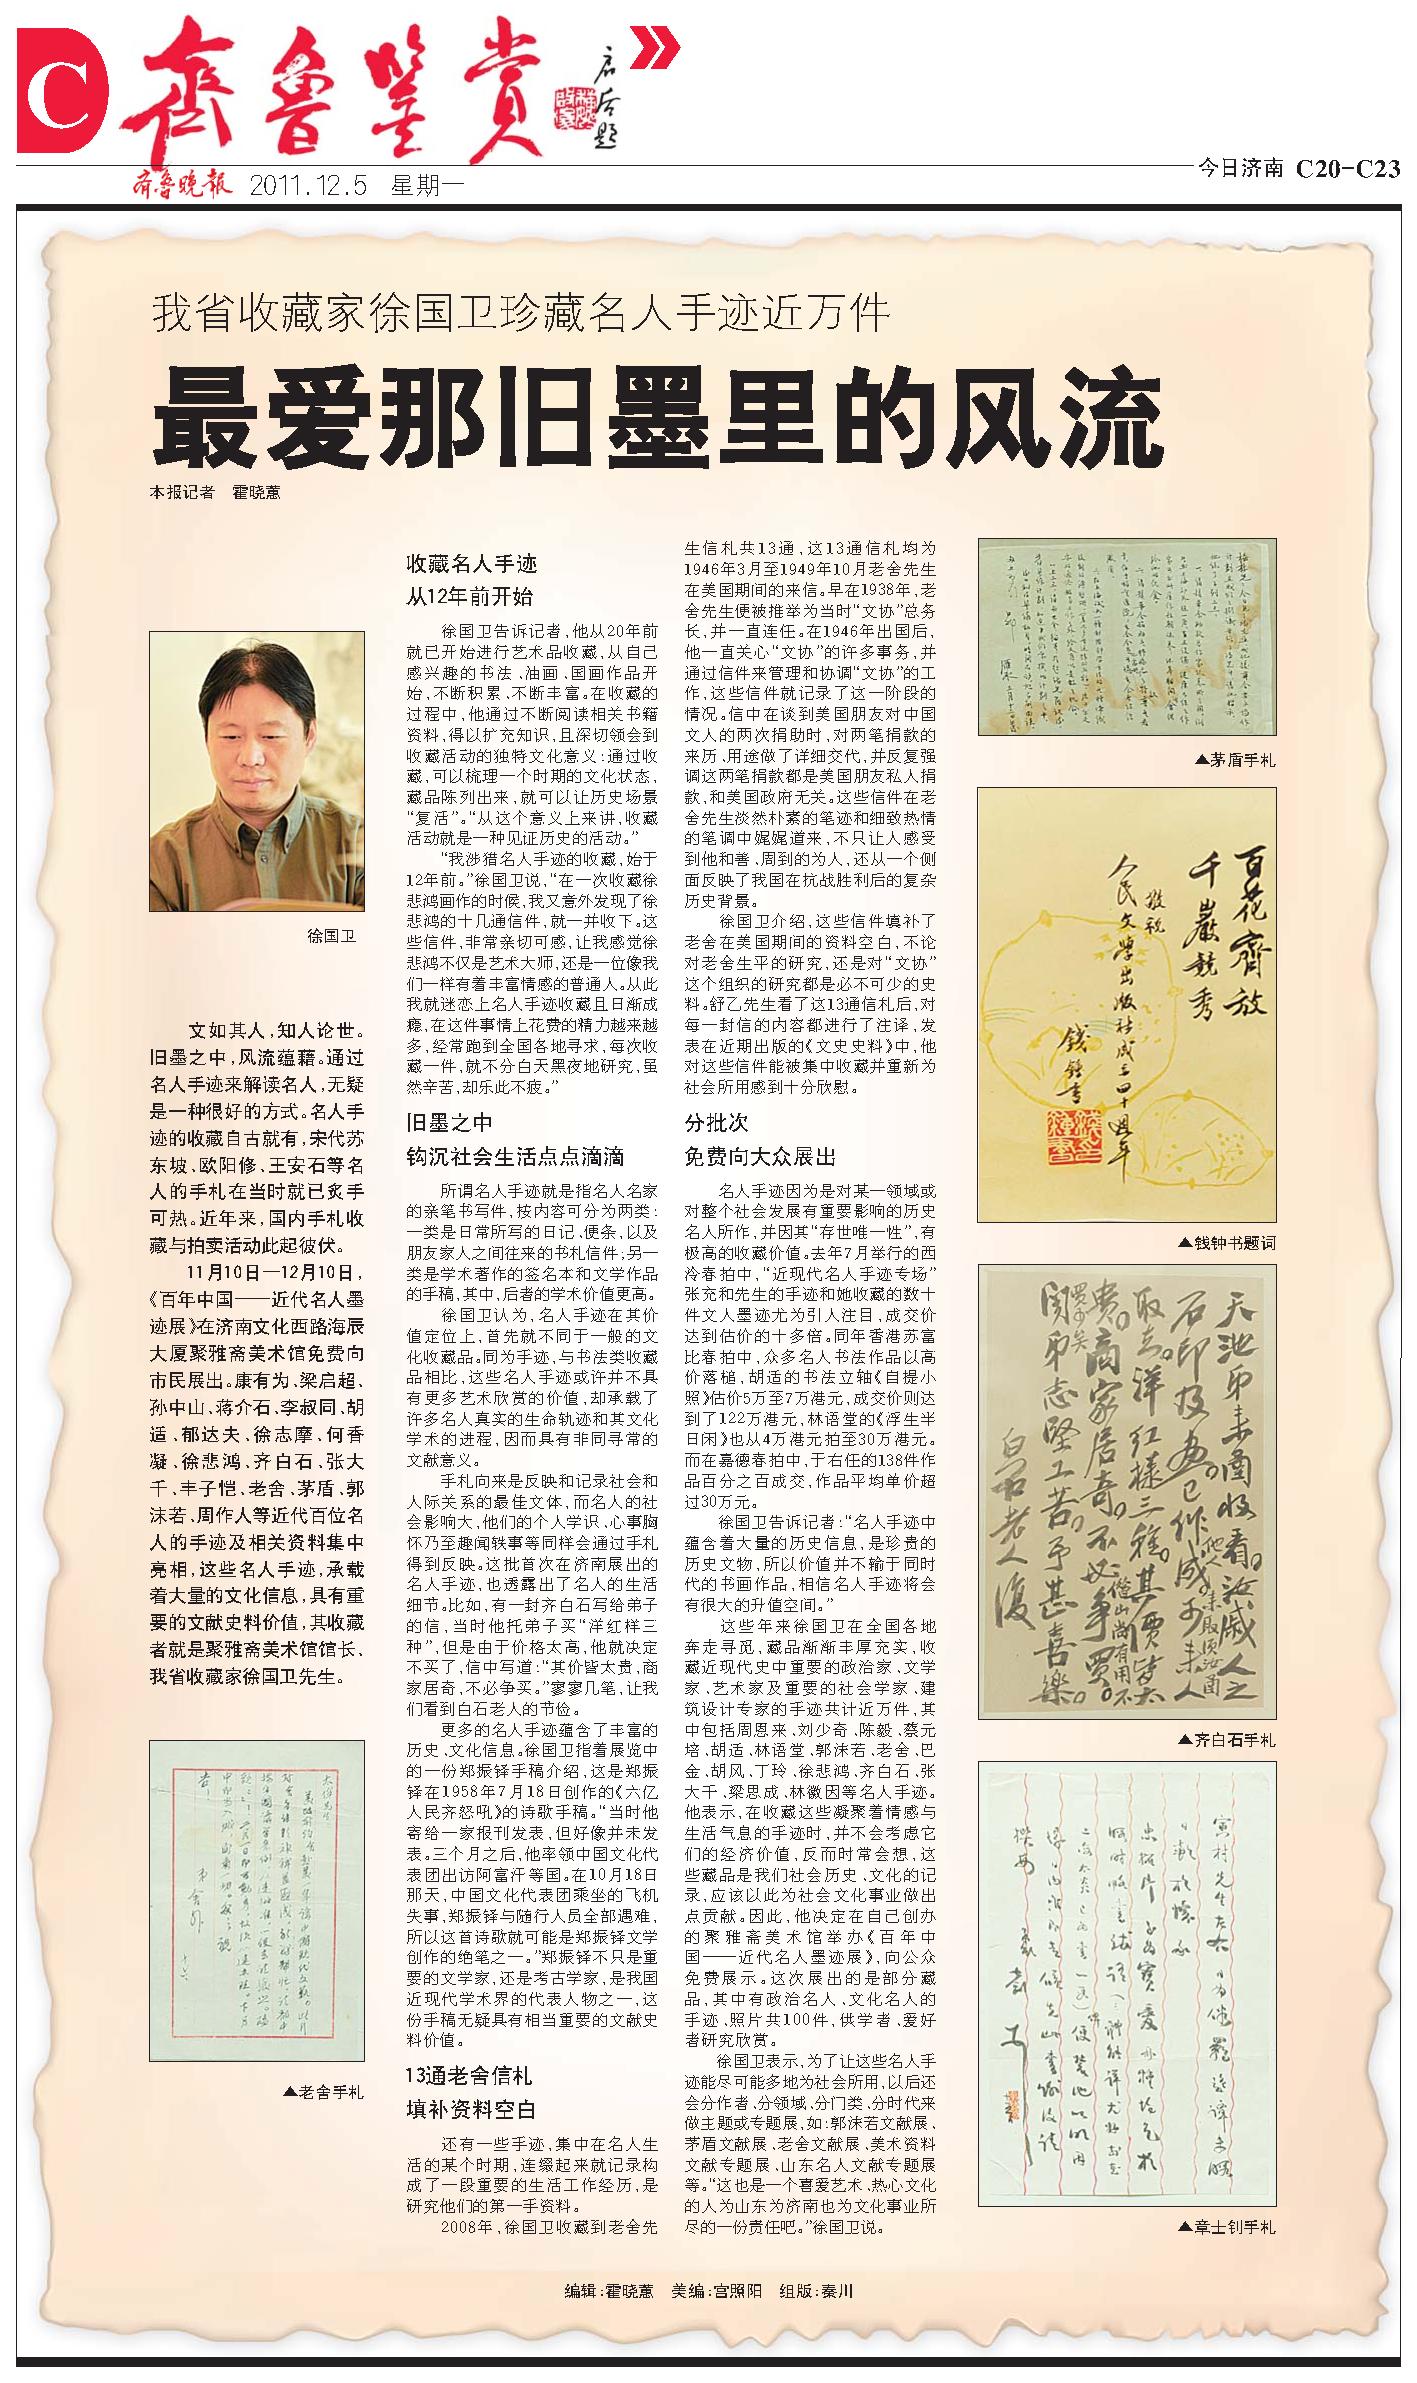 C
齐鲁鉴赏
启功题
齐鲁晚报 2011.12.5 星期一
今日济南 C20-C23
我省收藏家徐国卫珍藏名人手迹近万件
最爱那旧墨里的风流
本报记者 霍晓蕙
徐国卫
文如其人,知人论世。
旧墨之中,风流蕴藉。通过
名人手迹来解读名人,无疑
是一种很好的方式。名人手
迹的收藏自古就有,宋代苏
东坡、欧阳修、王安石等名
人的手札在当时就已炙手
可热。近年来,国内手札收
藏与拍卖活动此起彼伏。
11月10日—12月10日,
《百年中国——近代名人墨
迹展》在济南文化西路海辰
大厦聚雅斋美术馆免费向
市民展出。康有为、梁启超、
孙中山、蒋介石、李叔同、胡
适、郁达夫、徐志摩、何香
凝、徐悲鸿、齐白石、张大
千、丰子恺、老舍、茅盾、郭
沫若、周作人等近代百位名
人的手迹及相关资料集中
亮相,这些名人手迹,承载
着大量的文化信息,具有重
要的文献史料价值,其收藏
者就是聚雅斋美术馆馆长、
我省收藏家徐国卫先生。
▲老舍手札
收藏名人手迹
从12年前开始
徐国卫告诉记者,他从20年前
就已开始进行艺术品收藏,从自己
感兴趣的书法、油画、国画作品开
始,不断积累、不断丰富。在收藏的
过程中,他通过不断阅读相关书籍
资料,得以扩充知识,且深切领会到
收藏活动的独特文化意义:通过收
藏,可以梳理一个时期的文化状态,
藏品陈列出来,就可以让历史场景
“复活”。“从这个意义上来讲,收藏
活动就是一种见证历史的活动。”
“我涉猎名人手迹的收藏,始于
12年前。”徐国卫说,“在一次收藏徐
悲鸿画作的时候,我又意外发现了徐
悲鸿的十几通信件,就一并收下。这
些信件,非常亲切可感,让我感觉徐
悲鸿不仅是艺术大师,还是一位像我
们一样有着丰富情感的普通人。从此
我就迷恋上名人手迹收藏且日渐成
瘾,在这件事情上花费的精力越来越
多,经常跑到全国各地寻求,每次收
藏一件,就不分白天黑夜地研究,虽
然辛苦,却乐此不疲。”
旧墨之中
钩沉社会生活点点滴滴
所谓名人手迹就是指名人名家
的亲笔书写件,按内容可分为两类:
一类是日常所写的日记、便条,以及
朋友家人之间往来的书札信件;另一
类是学术著作的签名本和文学作品
的手稿,其中,后者的学术价值更高。
徐国卫认为,名人手迹在其价
值定位上,首先就不同于一般的文
化收藏品。同为手迹,与书法类收藏
品相比,这些名人手迹或许并不具
有更多艺术欣赏的价值,却承载了
许多名人真实的生命轨迹和其文化
学术的进程,因而具有非同寻常的
文献意义。
手札向来是反映和记录社会和
人际关系的最佳文体,而名人的社
会影响大,他们的个人学识、心事胸
怀乃至趣闻轶事等同样会通过手札
得到反映。这批首次在济南展出的
名人手迹,也透露出了名人的生活
细节。比如,有一封齐白石写给弟子
的信,当时他托弟子买“洋红样三
种”,但是由于价格太高,他就决定
不买了,信中写道:“其价皆太贵,商
家居奇,不必争买。”寥寥几笔,让我
们看到白石老人的节俭。
更多的名人手迹蕴含了丰富的
历史、文化信息。徐国卫指着展览中
的一份郑振铎手稿介绍,这是郑振
铎在1958年7月18日创作的《六亿
人民齐怒吼》的诗歌手稿。“当时他
寄给一家报刊发表,但好像并未发
表。三个月之后,他率领中国文化代
表团出访阿富汗等国。在10月18日
那天,中国文化代表团乘坐的飞机
失事,郑振铎与随行人员全部遇难,
所以这首诗歌就可能是郑振铎文学
创作的绝笔之一。”郑振铎不只是重
要的文学家,还是考古学家,是我国
近现代学术界的代表人物之一,这
份手稿无疑具有相当重要的文献史
料价值。
13通老舍信札
填补资料空白
还有一些手迹,集中在名人生
活的某个时期,连缀起来就记录构
成了一段重要的生活工作经历,是
研究他们的第一手资料。
2008年,徐国卫收藏到老舍先
生信札共13通,这13通信札均为
1946年3月至1949年10月老舍先生
在美国期间的来信。早在1938年,老
舍先生便被推举为当时“文协”总务
长,并一直连任。在1946年出国后,
他一直关心“文协”的许多事务,并
通过信件来管理和协调“文协”的工
作,这些信件就记录了这一阶段的
情况。信中在谈到美国朋友对中国
文人的两次捐助时,对两笔捐款的
来历、用途做了详细交代,并反复强
调这两笔捐款都是美国朋友私人捐
款,和美国政府无关。这些信件在老
舍先生淡然朴素的笔迹和细致热情
的笔调中娓娓道来,不只让人感受
到他和善、周到的为人,还从一个侧
面反映了我国在抗战胜利后的复杂
历史背景。
徐国卫介绍,这些信件填补了
老舍在美国期间的资料空白,不论
对老舍生平的研究,还是对“文协”
这个组织的研究都是必不可少的史
料。舒乙先生看了这13通信札后,对
每一封信的内容都进行了注译,发
表在近期出版的《文史史料》中,他
对这些信件能被集中收藏并重新为
社会所用感到十分欣慰。
分批次
免费向大众展出
名人手迹因为是对某一领域或
对整个社会发展有重要影响的历史
名人所作,并因其“存世唯一性”,有
极高的收藏价值。去年7月举行的西
泠春拍中,“近现代名人手迹专场”
张充和先生的手迹和她收藏的数十
件文人墨迹尤为引人注目,成交价
达到估价的十多倍。同年香港苏富
比春拍中,众多名人书法作品以高
价落槌,胡适的书法立轴《自提小
照》估价5万至7万港元,成交价则达
到了122万港元,林语堂的《浮生半
日闲》也从4万港元拍至30万港元。
而在嘉德春拍中,于右任的138件作
品百分之百成交,作品平均单价超
过30万元。
徐国卫告诉记者:“名人手迹中
蕴含着大量的历史信息,是珍贵的
历史文物,所以价值并不输于同时
代的书画作品,相信名人手迹将会
有很大的升值空间。”
这些年来徐国卫在全国各地
奔走寻觅,藏品渐渐丰厚充实,收
藏近现代史中重要的政治家、文学
家、艺术家及重要的社会学家、建
筑设计专家的手迹共计近万件,其
中包括周恩来、刘少奇、陈毅、蔡元
培、胡适、林语堂、郭沫若、老舍、巴
金、胡风、丁玲、徐悲鸿、齐白石、张
大千、梁思成、林徽因等名人手迹。
他表示,在收藏这些凝聚着情感与
生活气息的手迹时,并不会考虑它
们的经济价值,反而时常会想,这
些藏品是我们社会历史、文化的记
录,应该以此为社会文化事业做出
点贡献。因此,他决定在自己创办
的聚雅斋美术馆举办《百年中
国——近代名人墨迹展》,向公众
免费展示。这次展出的是部分藏
品,其中有政治名人、文化名人的
手迹、照片共100件,供学者、爱好
者研究欣赏。
徐国卫表示,为了让这些名人手
迹能尽可能多地为社会所用,以后还
会分作者、分领域、分门类、分时代来
做主题或专题展,如:郭沫若文献展、
茅盾文献展、老舍文献展、美术资料
文献专题展、山东名人文献专题展
等。“这也是一个喜爱艺术、热心文化
的人为山东为济南也为文化事业所
尽的一份责任吧。”徐国卫说。
▲茅盾手札
百花齊放
千巖競秀
敬祝
人民文學出版社成立四十週年
錢鍾書
▲钱钟书题词
取去。洋紅樣三種。其價皆太
貴。商家居奇。不必爭買。
白石老人復
▲齐白石手札
▲章士钊手札
编辑:霍晓蕙 美编:宫照阳 组版:秦川